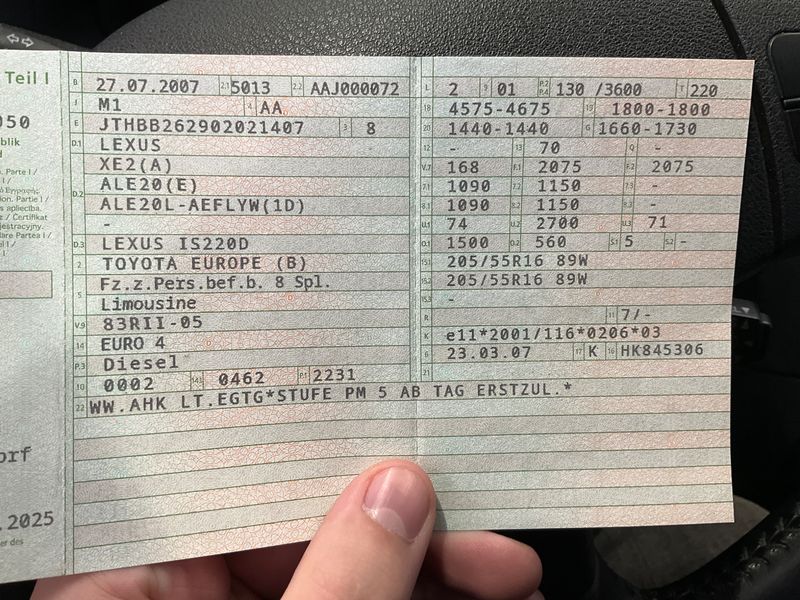 Teil I
050
blik
d
. Parte I /
ion. Parte I /
s apliecība.
z / Certifikat
jestracyjny.
lare Partea I /
el I /
orf
.2025
er des
B 27.07.2007 2.1 5013 2.2 AAJ000072
J M1 4 AA
E JTHBB262902021407 3 8
D.1 LEXUS
D.2 XE2(A)
ALE20(E)
ALE20L-AEFLYW(1D)
-
D.3 LEXUS IS220D
2 TOYOTA EUROPE (B)
5 Fz.z.Pers.bef.b. 8 Spl.
Limousine
V.9 83RII-05
14 EURO 4
P.3 Diesel
10 0002 14.1 0462 P.1 2231
22 WW.AHK LT.EGTG*STUFE PM 5 AB TAG ERSTZUL.*
L 2 9 01 P.2 P.4 130 /3600 T 220
18 4575-4675 19 1800-1800
20 1440-1440 G 1660-1730
12 - 13 70 Q -
V.7 168 F.1 2075 F.2 2075
7.1 1090 7.2 1150 7.3 -
8.1 1090 8.2 1150 8.3 -
U.1 74 U.2 2700 U.3 71
O.1 1500 O.2 560 S.1 5 S.2 -
15.1 205/55R16 89W
15.2 205/55R16 89W
15.3 -
R 11 7/-
K e11*2001/116*0206*03
6 23.03.07 17 K 16 HK845306
21